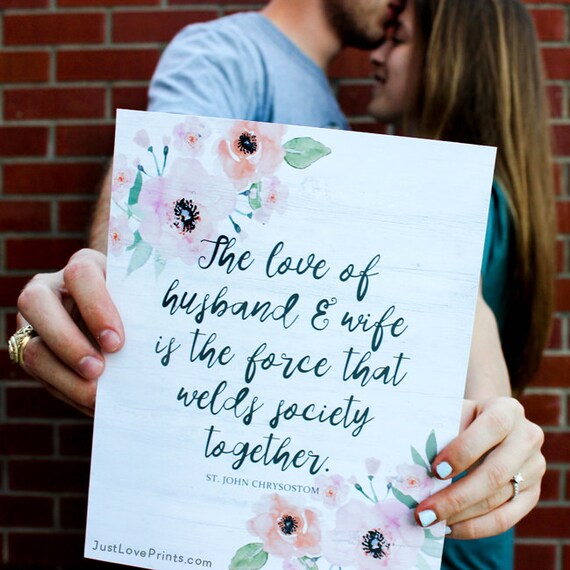 The love of
husband & wife
is the force that
welds society
together.
ST. JOHN CHRYSOSTOM
JustLovePrints.com